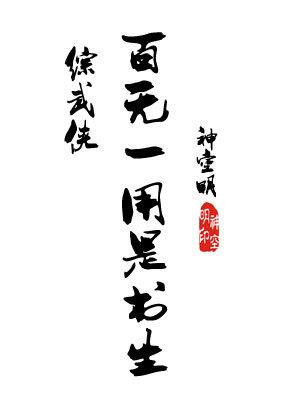 综武侠
百无一用是书生
神空明
神空明印